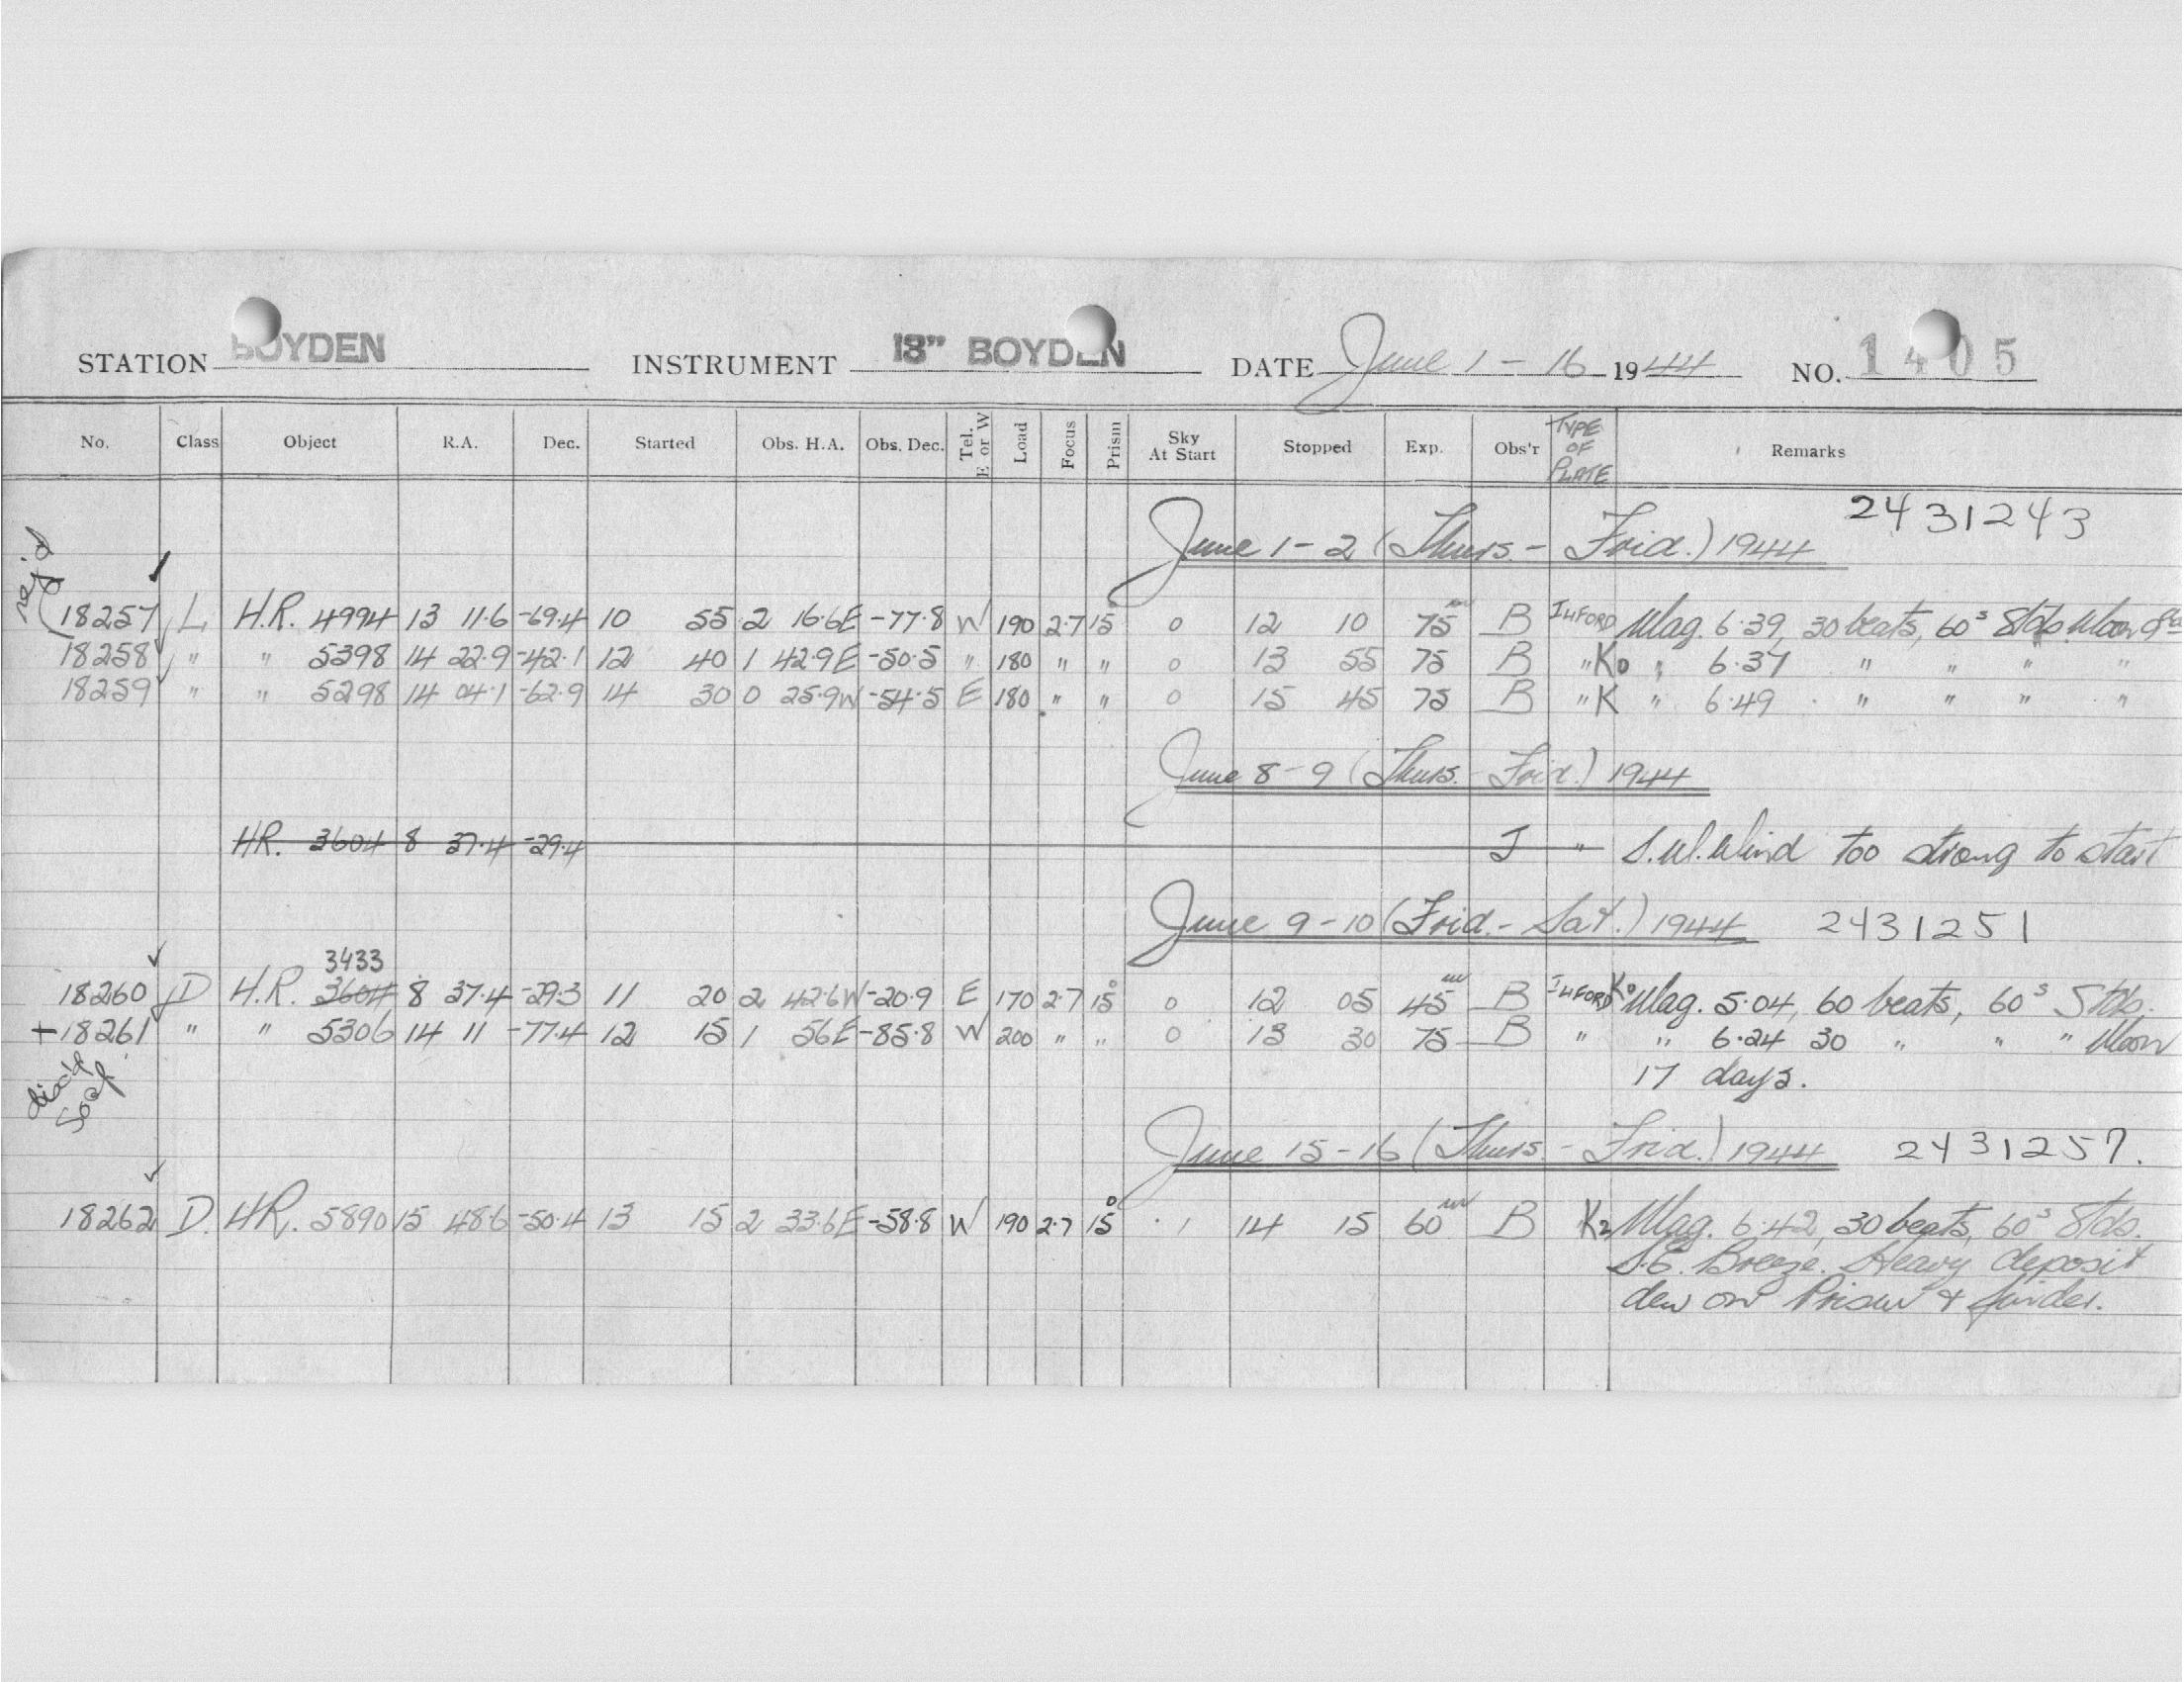 STATION BOYDEN INSTRUMENT 18" BOYDEN DATE June 1 - 16 1944 NO. 1405
No. Class Object R.A. Dec. Started Obs. H.A. Obs. Dec. Tel. E or W Load Focus Prism Sky At Start Stopped Exp. Obs'r TYPE OF PLATE Remarks
June 1-2 (Thurs.- Frid.) 1944 2431243
rej'd
18257 L H.R. 4994 13 11.6 -69.4 10 55 2 16.6E -77.8 W 190 2.7 15° 0 12 10 75 B ILFORD Mag. 6.39, 30 beats, 60s Stds. Moon
18258 " " 5398 14 22.9 -42.1 12 40 1 42.9E -50.5 " 180 " " 0 13 55 75 B " K0 " 6.37 " " " "
18259 " " 5298 14 04.1 -62.9 14 30 0 25.9W -54.5 E 180 " " 0 15 45 75 B " K " 6.49 " " " "
June 8-9 (Thurs. - Frid.) 1944
HR. 3604 8 37.4 -29.4 J " S.W. Wind too strong to start
June 9-10 (Frid.- Sat.) 1944 2431251
3433
18260 D H.R. 3604 8 37.4 -29.3 11 20 2 42.6W -20.9 E 170 2.7 15° 0 12 05 45 B ILFORD K0 Mag. 5.04, 60 beats, 60s Stds.
+18261 " " 5306 14 11 -77.4 12 15 1 56E -85.8 W 200 " " 0 13 30 75 B " " 6.24 30 " " " Moon
17 days.
disc'd
June 15-16 (Thurs.- Frid.) 1944 2431257.
18262 D. HR. 5890 15 48.6 -50.4 13 15 2 33.6E -58.8 W 190 2.7 15° .1 14 15 60 B K2 Mag. 6.42, 30 beats, 60s Stds.
S.E. Breeze. Heavy deposit
dew on Prism & finder.